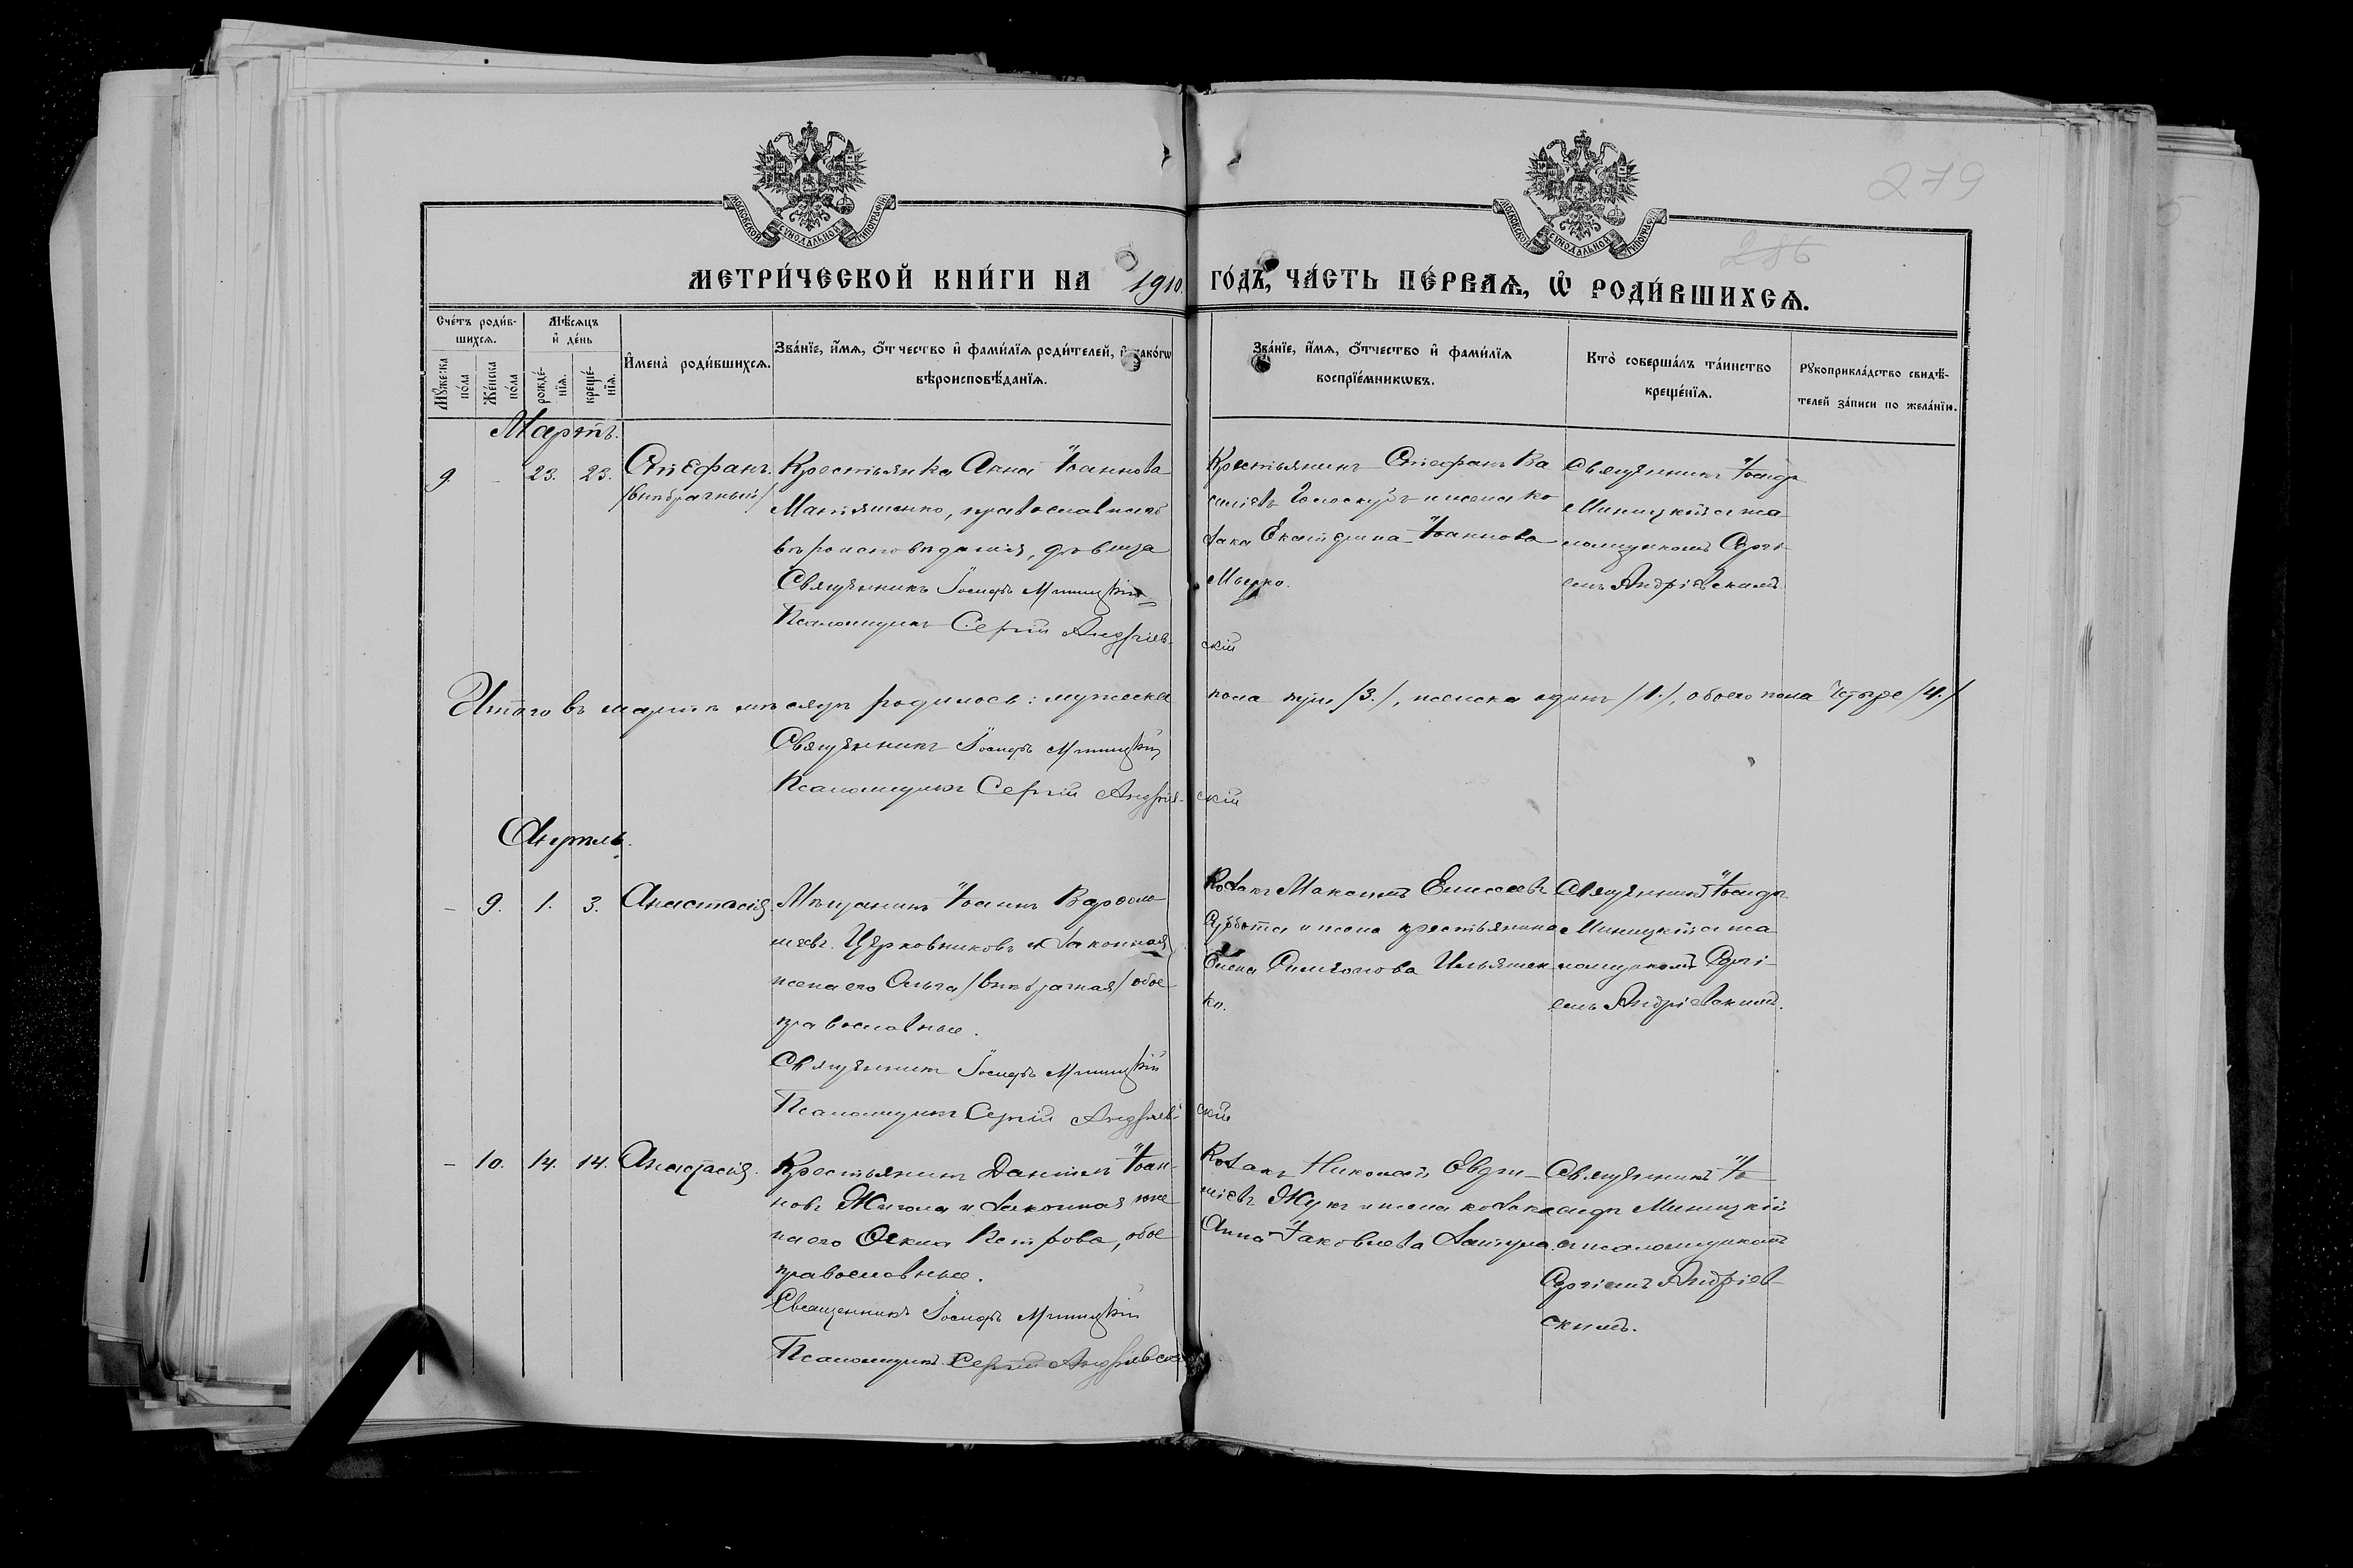 279
286
МОСКОВСКОЙ СУНОДАЛЬНОЙ ТИПОГРАФІИ
МОСКОВСКОЙ СУНОДАЛЬНОЙ ТИПОГРАФІИ
МЕТРИ́ЧЕСКОЙ КНИ́ГИ НА 1910 ГО́ДЪ, ЧА́СТЬ ПЕ́РВАѦ, Ѡ҆ РОДИ́ВШИХСѦ.
Сче́тъ роди́в-
шихсѧ.
Мꙋ́жеска по́ла
Же́нска по́ла
Мѣ́сѧцъ
и҆ де́нь
рожде́-
нїѧ.
креще́-
нїѧ.
И҆мена̀ роди́вшихсѧ.
Зва́нїе, и҆́мѧ, ѻ҆́тчество и҆ фами́лїѧ роди́телей, и҆ како́гѡ
вѣроисповѣ́данїѧ.
Зва́нїе, и҆́мѧ, ѻ҆́тчество и҆ фами́лїѧ
воспрїе́мникѡвъ.
Кто̀ соверша́лъ та́инство
креще́нїѧ.
Рꙋкоприкла́дство свидѣ́-
телей за́писи по жела́нїю.
Мартъ.
9. - 23. 23. Стефанъ
/внѣбрачный/
Крестьянка Анна Іоаннова
Матяшенко, православнаго
вѣроисповѣданія, дѣвица
Священникъ Іосифъ Миницкій
Псаломщикъ Сергій Андріев-
скій
Крестьянинъ Стефанъ Ва
силіевъ Голоскубъ и жена ко
зака Екатерина Іоаннова
Священникъ Іосифъ
Миницкій с пса
ломщикомъ Сергі-
емъ Андріевскимъ.
Итого въ мартѣ мѣсяцѣ родилось: мужеска пола три /3./, женска одинъ /1./, обоего пола четыре /4./
Священникъ Іосифъ Миницкій
Псаломщикъ Сергій Андріев-
скій
Апрѣль.
- 9. 1. 3. Анастасія.
Мѣщанинъ Іоаннъ Варѳоло
меевъ Церковниковъ и законная
жена его Ольга /внѣбрачная/ обое
православные.
Священникъ Іосифъ Миницкій
Псаломщикъ Сергій Андріев-
скій
Козакъ Максимъ Елисеевъ
Суббота и жена крестьянина
Елена Симеонова Ильяшен
ко.
Священникъ Іосифъ
Миницкій с пса
ломщикомъ Сергі-
емъ Андріевскимъ.
- 10. 14. 14. Анастасія.
Крестьянинъ Даніилъ Іоан-
новъ Жигола и законная же
на его Ѳекла Петрова, обое
православные.
Священникъ Іосифъ Миницкій
Псаломщикъ Сергій Андріевскій
Козакъ Николай Евѳи-
міевъ Жукъ и жена козака
Анна Іаковлева
Священникъ Іо
сифъ Миницкій
с псаломщикомъ
Сергіемъ Андріев-
скимъ.